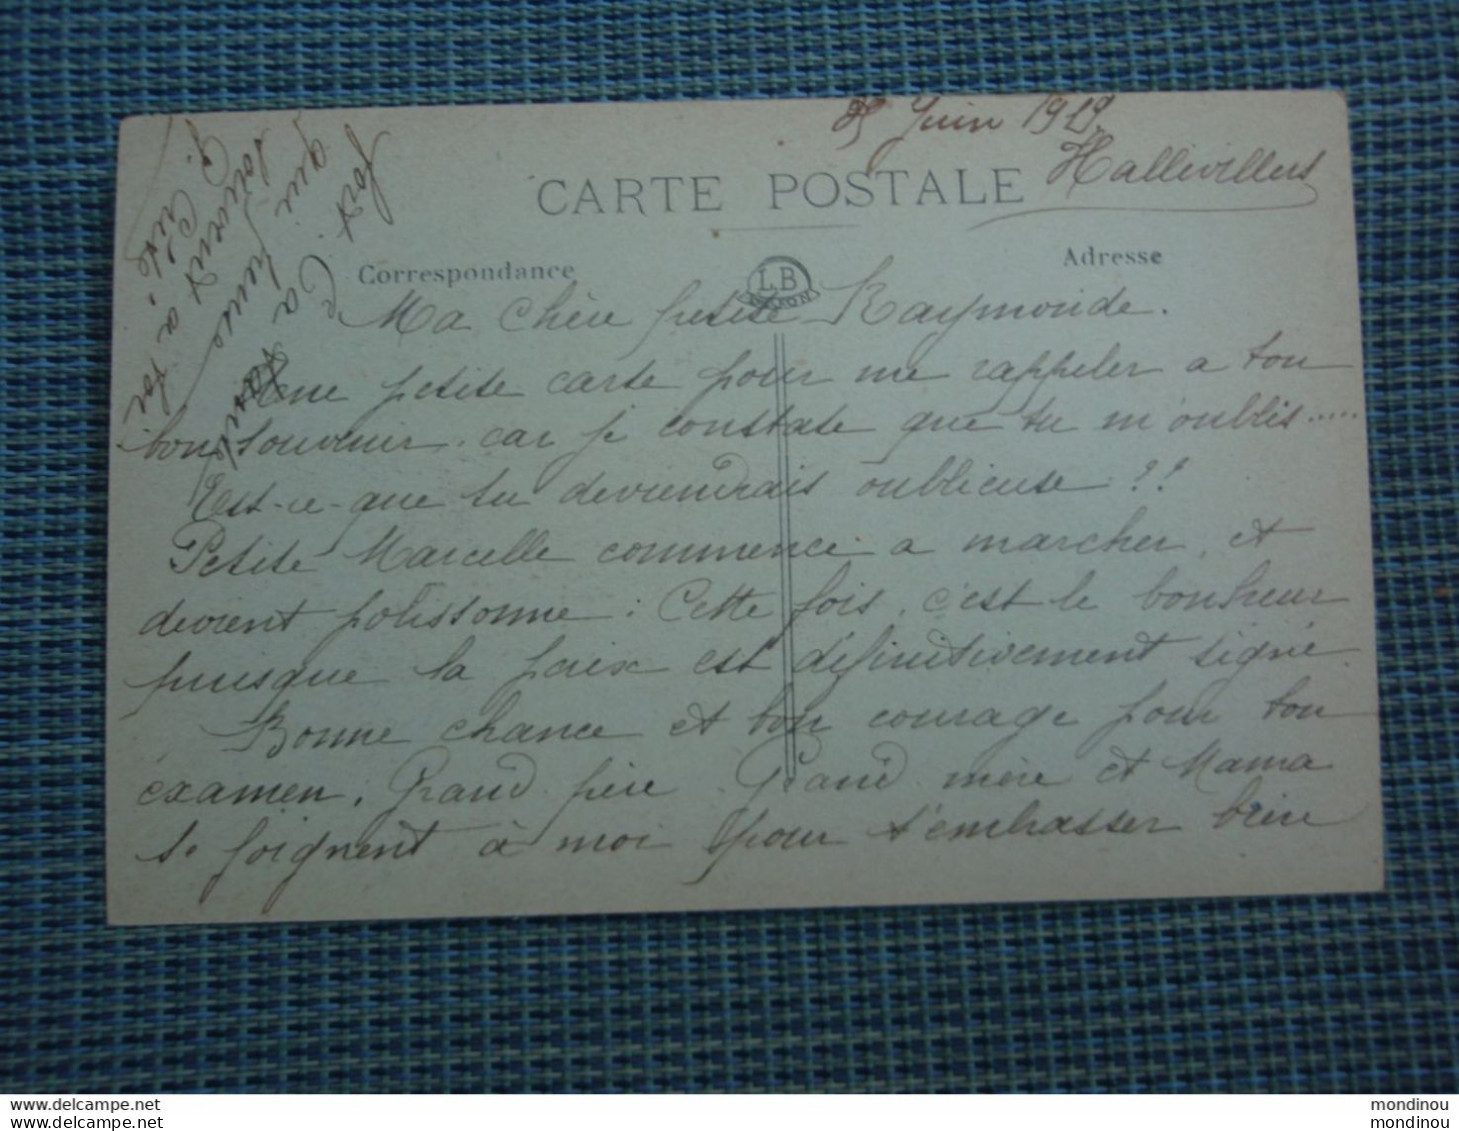 Juin 1919
Hallivillers
CARTE POSTALE
Correspondance
Adresse
LB
Ma Chère petite Raymonde.
Une petite carte pour me rappeler a ton
bon souvenir. car je constate que tu m'oublis.....
Est-ce-que tu deviendrais oublieuse ??
Petite Marcelle commence a marcher, et
devient polissonne. Cette fois, c'est le bonheur
puisque la paix est définitivement signé.
Bonne chance et bon courage pour ton
examen. Grand père Grand mère et Mama
se joignent à moi pour t'embrasser bien
fort. Ta
qui pense
souvent a toi
mondinou
mondinou
mondinou
mondinou